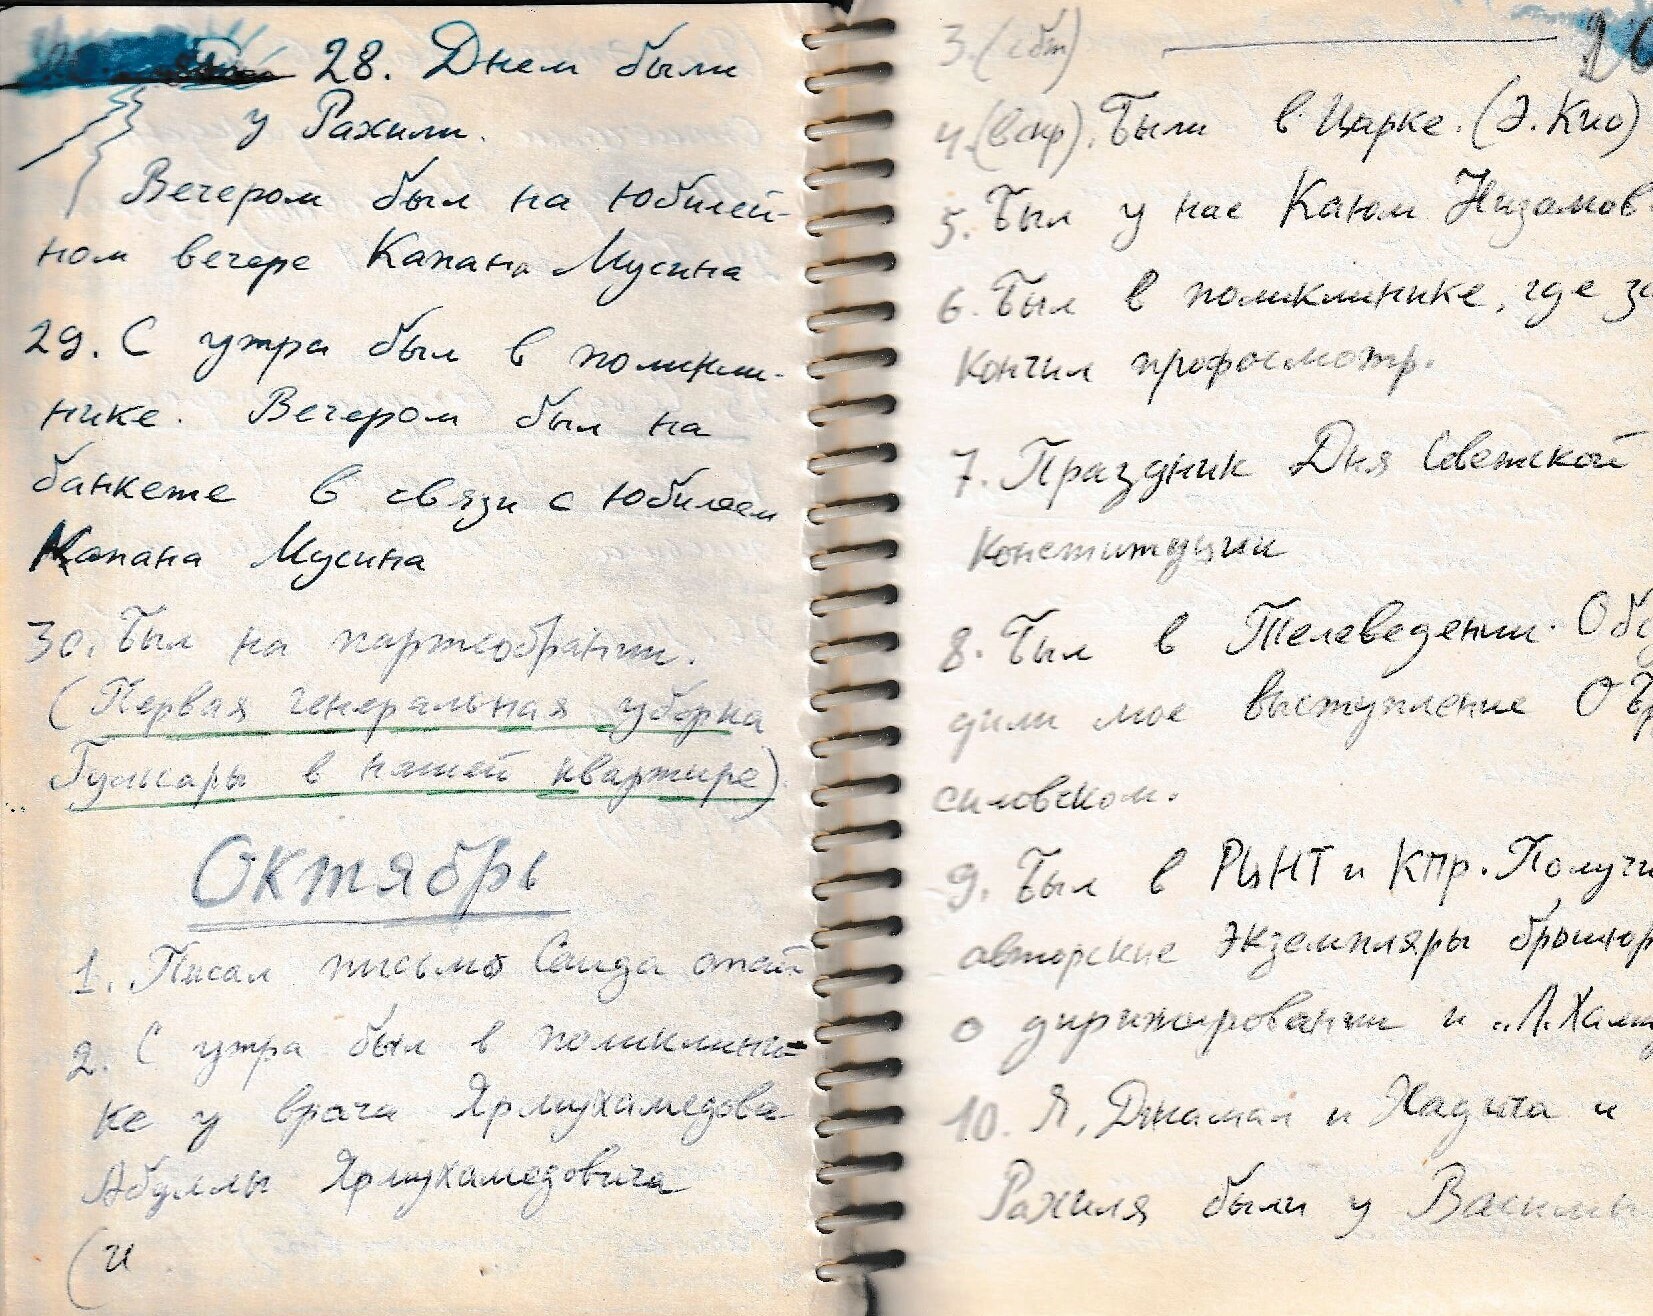 28. Днем были
у Рахили.
Вечером был на юбилей-
ном вечере Капана Мусина
29. С утра был в поликли-
нике. Вечером был на
банкете в связи с юбилеем
Капана Мусина
30. Был на партсобрании.
(Первая генеральная уборка
Гульсары в нашей квартире).
Октябрь
1. Писал письмо Саида апай
2. С утра был в поликлини-
ке у врача Ярмухамедова
Абдуллы Ярмухамедовича
(и
3. (сбт)
4. (вскр). Были в Цирке. (Э. Кио)
5. Был у нас Каюм Низамов
6. Был в поликлинике, где за
кончил профосмотр.
7. Праздник Дня Советской
Конституции
8. Был в Телеведении. Обсу
дили мое выступление о Бр
силовском.
9. Был в РЦНТ и КПр. Получи
авторские экземпляры брошюр
о дирижировании и „Л. Хами
10. Я, Джамал и Хадича и
Рахиля были у Василь